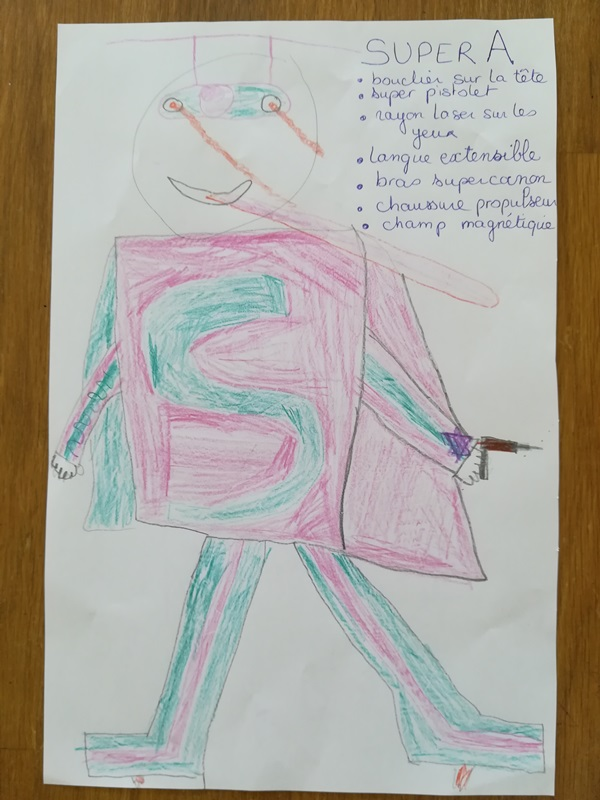 SUPER A
• bouclier sur la tête
• super pistolet
• rayon laser sur les
yeux
• langue extensible
• bras supercanon
• chaussure propulseur
• champ magnétique
S